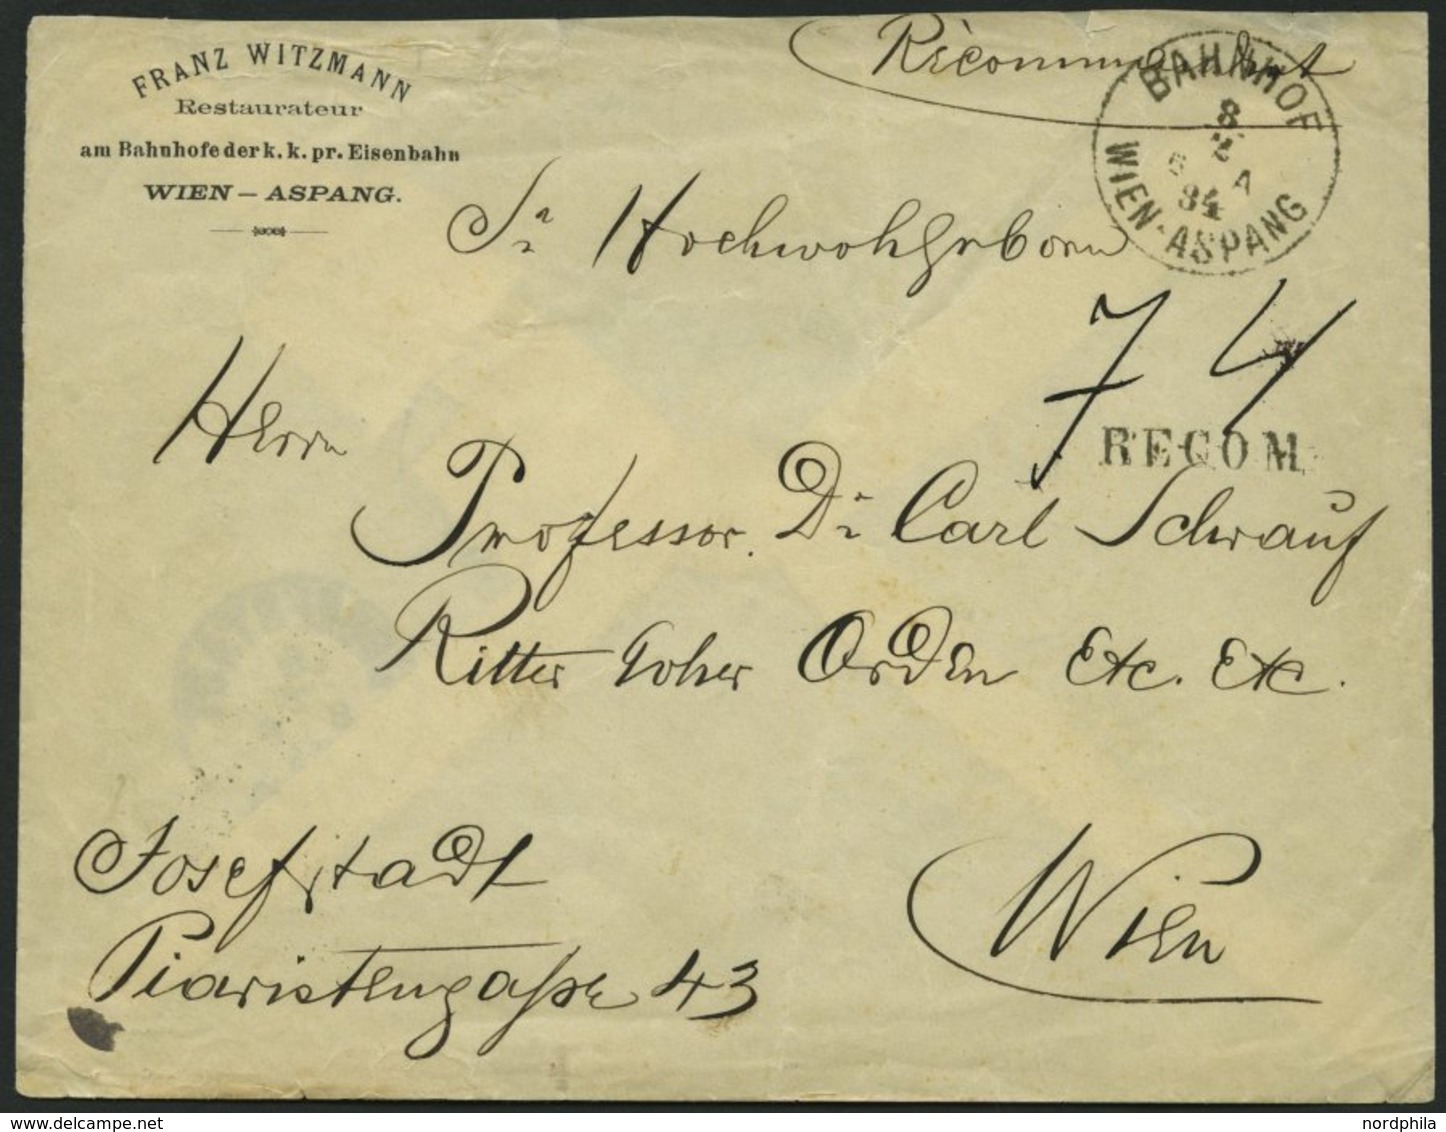 FRANZ WITZMANN
Restaurateur
am Bahnhofe der k. k. pr. Eisenbahn
WIEN – ASPANG.
Recommandirt
BAHNHOF
8
84
WIEN-ASPANG
Sr Hochwohlgeboren
74
RECOM
Herrn
Professor. Dr Carl Schrauf
Ritter hoher Orden Etc. Etc.
Josefstadt
Piaristengasse 43
Wien
nordphila